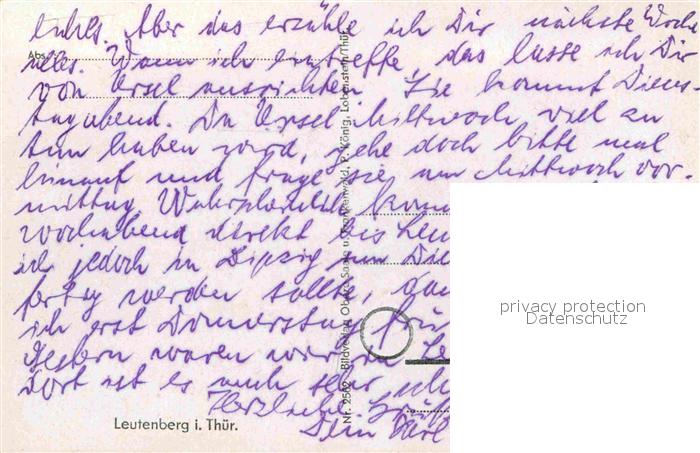 Aber das erzähle ich Dir nächste Woche
alles. Wann ich eintreffe, das lasse ich Dir
von Ursel ausrichten. Sie kommt Diens-
tagabend. Da Ursel Mittwoch viel zu
tun haben wird, gehe doch bitte mal
hinauf und frage sie am Mittwoch vor-
mittag. Wahrscheinlich
direkt bis
ich jedoch in Leipzig am
fertig werden sollte,
ich erst Donnerstag
Gestern waren wir in
Dort ist es auch sehr
Herzliche
Dein
Abs.
Leutenberg i. Thür.
Nr. 2562 Bildverlag Obere Saale u. Frankenwald, R. König, Lobenstein/Thür.
privacy protection
Datenschutz